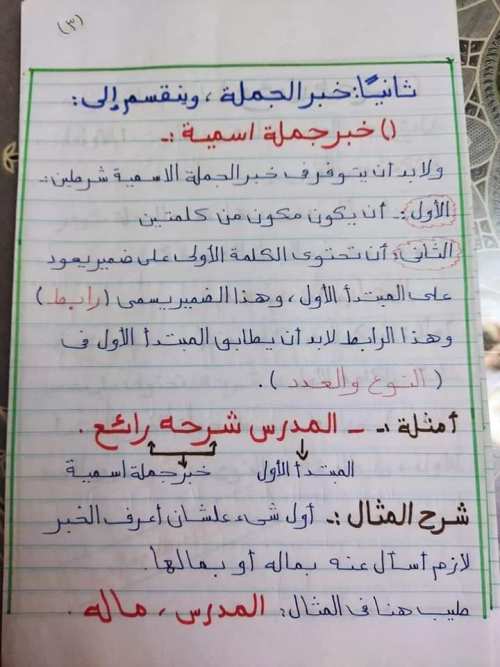 (٣)
ثانيًا: خبر الجملة، وينقسم إلى:
١) خبر جملة اسمية :ـ
ولابد أن يتوفر فى خبر الجملة الاسمية شرطين :ـ
الأول :ـ أن يكون مكون من كلمتين
الثانى: أن تحتوى الكلمة الأولى على ضمير يعود
على المبتدأ الأول، وهذا الضمير يسمى (رابط)
وهذا الرابط لابد أن يطابق المبتدأ الأول فى
(النوع والعدد).
أمثلة :ـ ـ المدرس شرحه رائع.
المبتدأ الأول خبر جملة اسمية
شرح المثال :ـ أول شىء علشان أعرف الخبر
لازم أسأل عنه بماله أو بمالها.
طيب هنا فى المثال: المدرس، ماله.